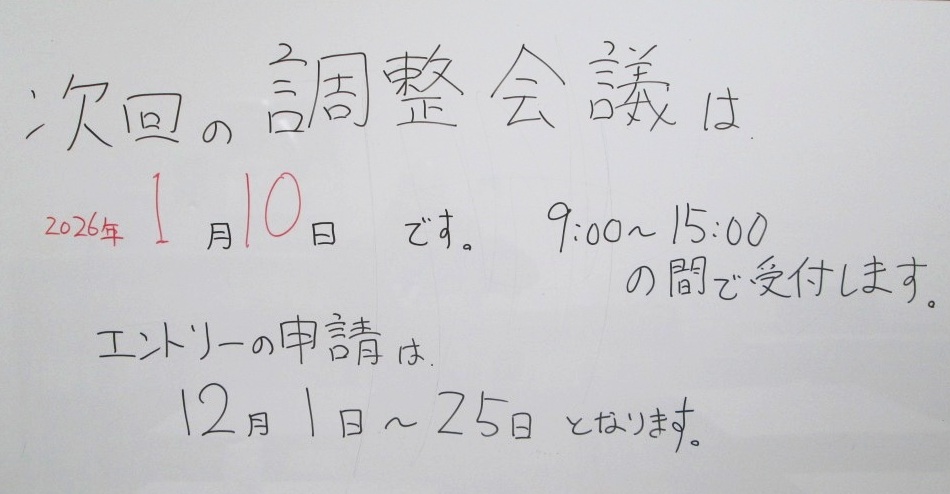 次回の調整会議は
2026年 1月10日 です。 9:00~15:00
の間で受付します。
エントリーの申請は
12月1日~25日となります。